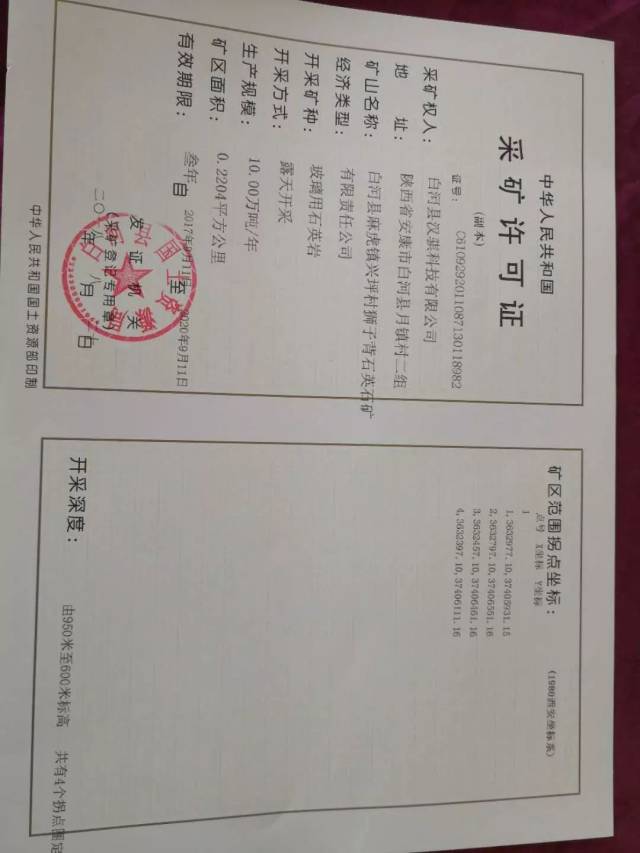 中华人民共和国
采矿许可证
(副本)
证号: C6109292011087130118982
采矿权人: 白河县汉骐科技有限公司
地 址: 陕西省安康市白河县月镇村二组
矿山名称: 白河县麻虎镇兴坪村狮子背石英石矿
经济类型: 有限责任公司
开采矿种: 玻璃用石英岩
开采方式: 露天开采
生产规模: 10.00万吨/年
矿区面积: 0.2204平方公里
有效期限: 叁年 自 2017年9月11日 至 2020年9月11日
发证机关
(采矿登记专用章)
二〇 年 月 十
中华人民共和国国土资源部印制
矿区范围拐点坐标:
(1980西安坐标系)
点号 X坐标 Y坐标
1
1, 3632977.10, 37405931.15
2, 3632797.10, 37406551.16
3, 3632457.10, 37406461.16
4, 3632397.10, 37406111.16
开采深度: 由950米至600米标高 共有4个拐点圈定